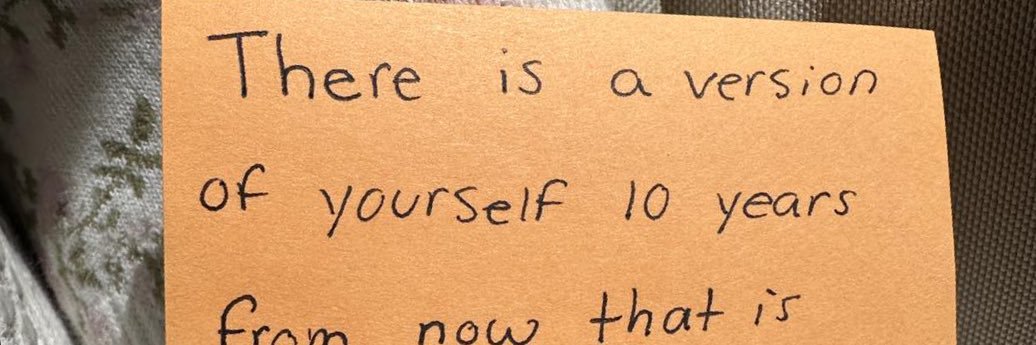 There is a version
of yourself 10 years
from now that is